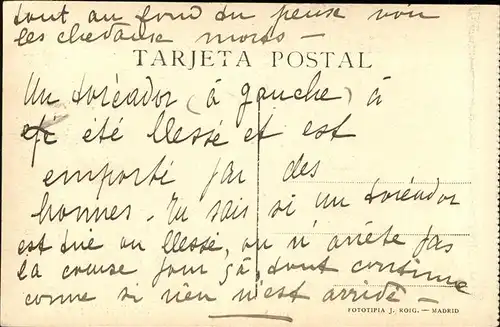 tout au fond tu peux voir
les chevaux morts —
TARJETA POSTAL
Un toréador (à gauche) à
été blessé et est
emporté par des
hommes. Tu sais si un toréador
est tué ou blessé, on n'arrête pas
la course pour çà, tout continue
comme si rien n'est arrivé —
FOTOTIPIA J. ROIG. — MADRID